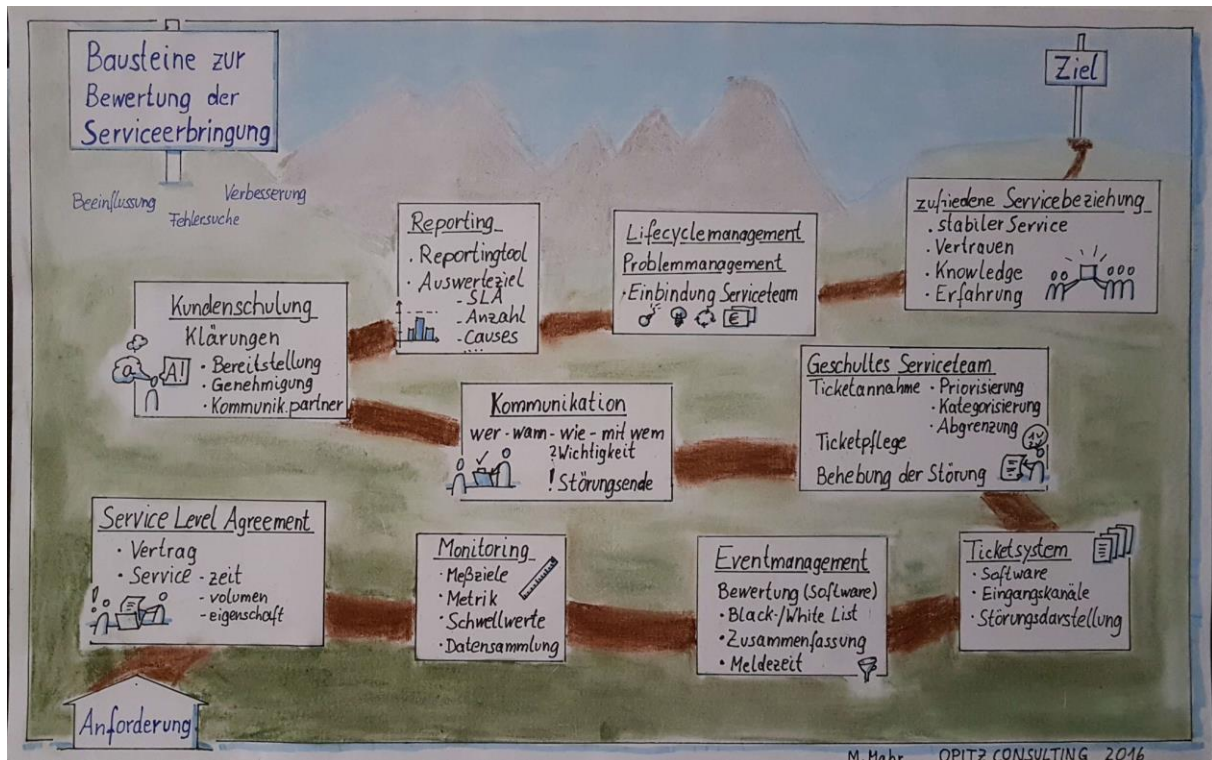 Bausteine zur
Bewertung der
Serviceerbringung
Beeinflussung
Fehlersuche
Verbesserung
Ziel
zufriedene Servicebeziehung
. stabiler Service
· Vertrauen
· Knowledge
· Erfahrung
Lifecyclemanagement
Problemmanagement
· Einbindung Serviceteam
€
Reporting
· Reportingtool
· Auswerteziel
- SLA
- Anzahl
- Causes
....
Kundenschulung
Klärungen
· Bereitstellung
· Genehmigung
· Kommunik.partner
a
A!
Kommunikation
wer - wann - wie - mit wem
? Wichtigkeit
! Störungsende
Geschultes Serviceteam
Ticketannahme · Priorisierung
· Kategorisierung
· Abgrenzung
Ticketpflege
Behebung der Störung
Service Level Agreement
· Vertrag
· Service - zeit
- volumen
- eigenschaft
Monitoring
· Meßziele
· Metrik
· Schwellwerte
· Datensammlung
Eventmanagement
Bewertung (Software)
· Black-/White List
· Zusammenfassung
· Meldezeit
Ticketsystem
· Software
· Eingangskanäle
· Störungsdarstellung
Anforderung
M. Mahr OPITZ CONSULTING 2016